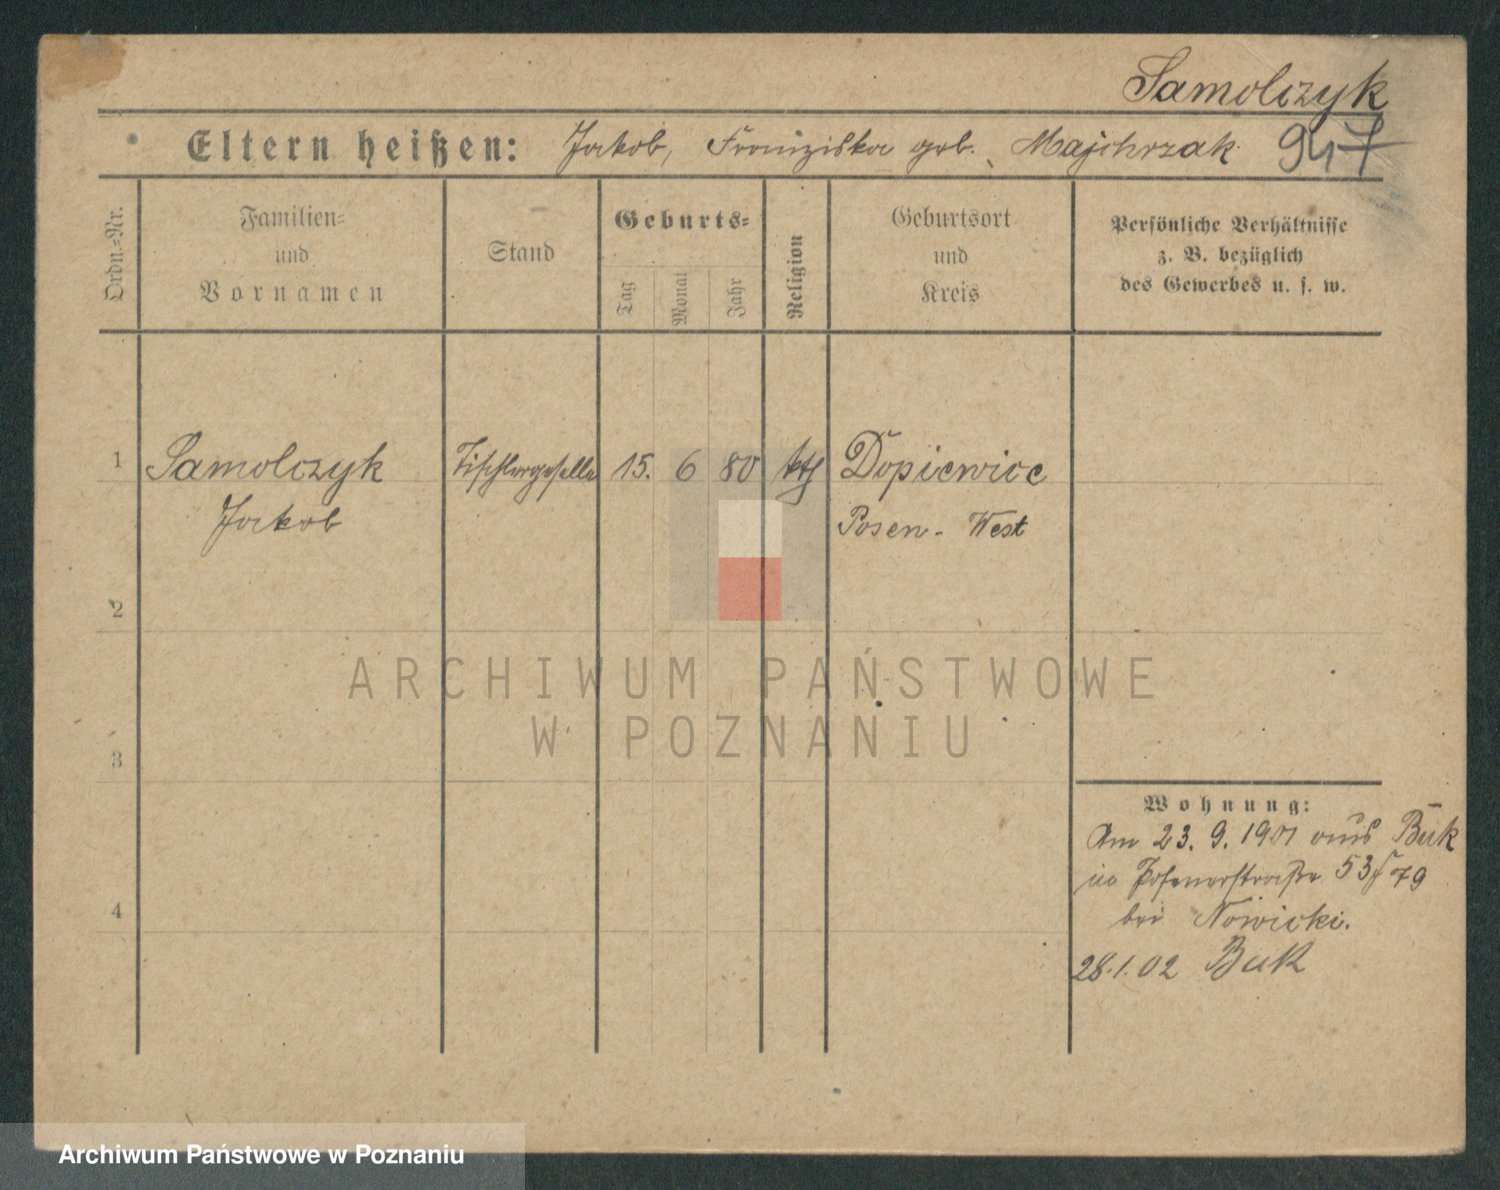 Samolczyk
Eltern heißen: Jakob, Franziska geb. Majchrzak 947
Ordn.-Nr.
Familien-
und
Vornamen
Stand
Geburts-
Tag
Monat
Jahr
Religion
Geburtsort
und
Kreis
Persönliche Verhältnisse
z. B. bezüglich
des Gewerbes u. s. w.
1 Samolczyk Tischlergeselle 15. 6 80 kth Dopiewice
Jakob Posen-West
2
3
4
Wohnung:
Am 23. 9. 1901 aus Buk
in Posenerstraße 53/79
bei Nowicki.
28.1.02 Buk
ARCHIWUM PAŃSTWOWE
W POZNANIU
Archiwum Państwowe w Poznaniu